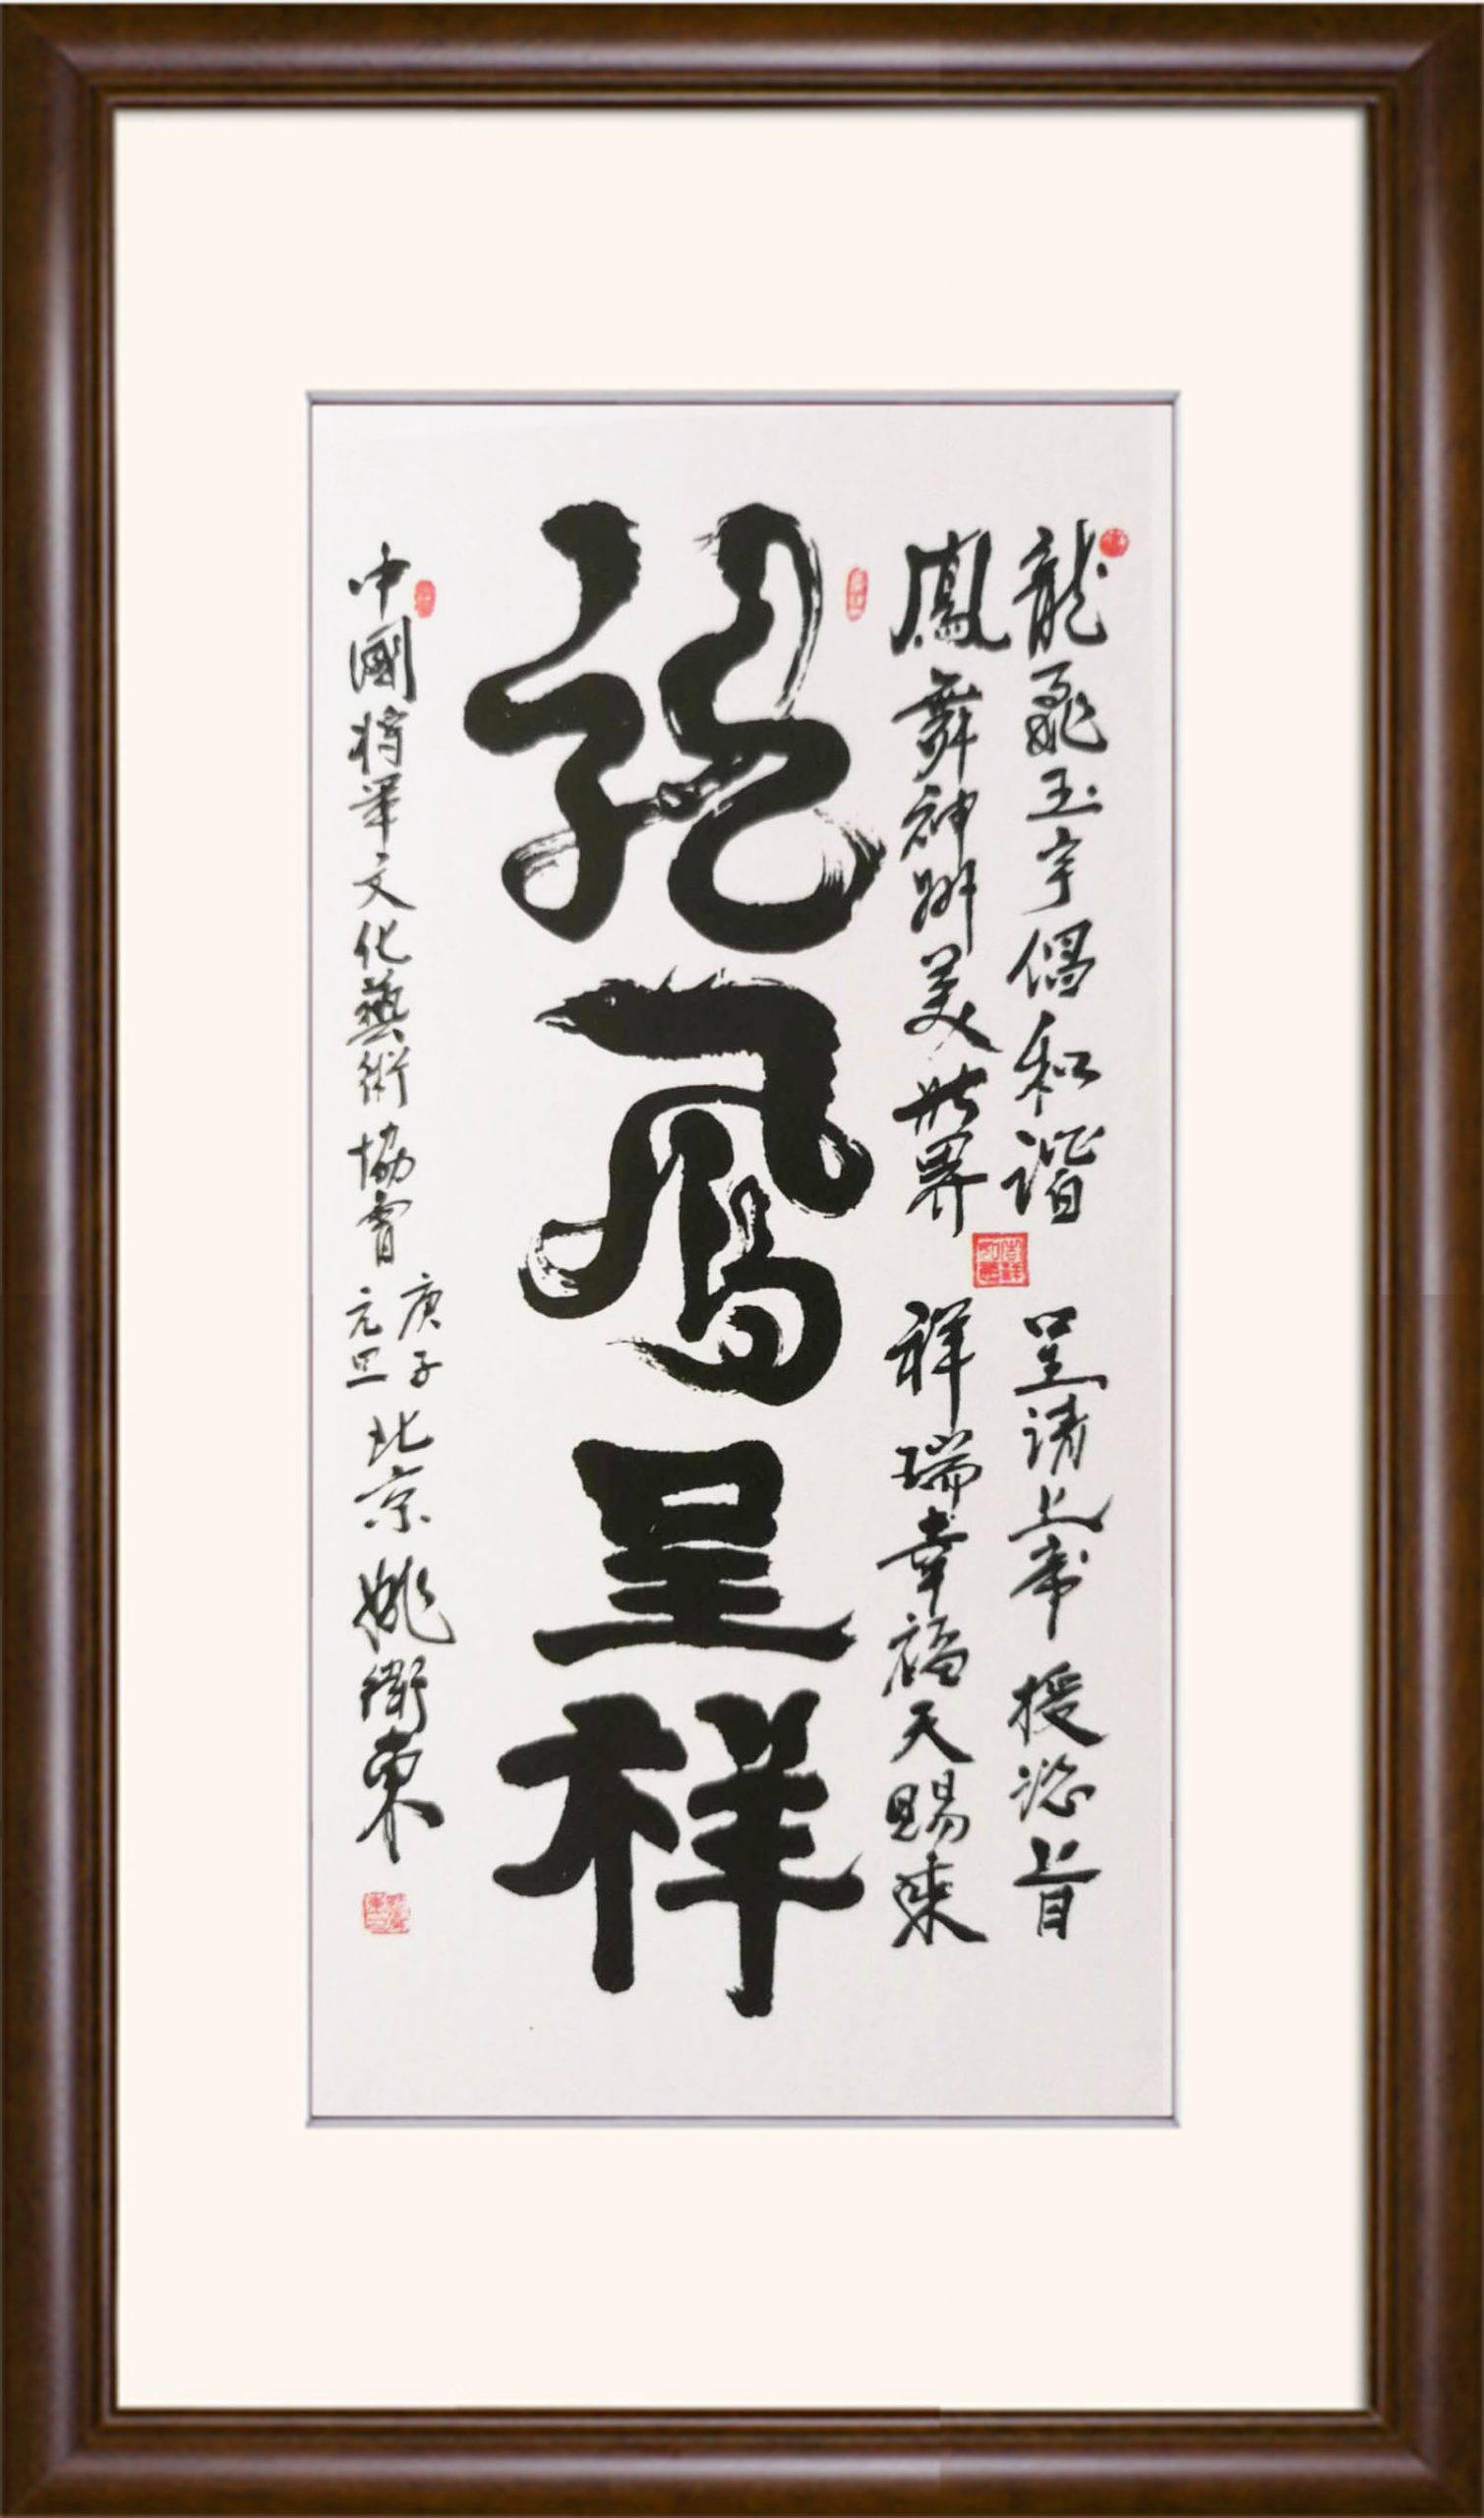 龍飛玉宇倡和諧
呈請上帝授谂旨
鳳舞神州美世界
祥瑞幸福天賜來
龍鳳呈祥
中國將軍文化藝術協會
庚子
元旦
北京 姚衛東